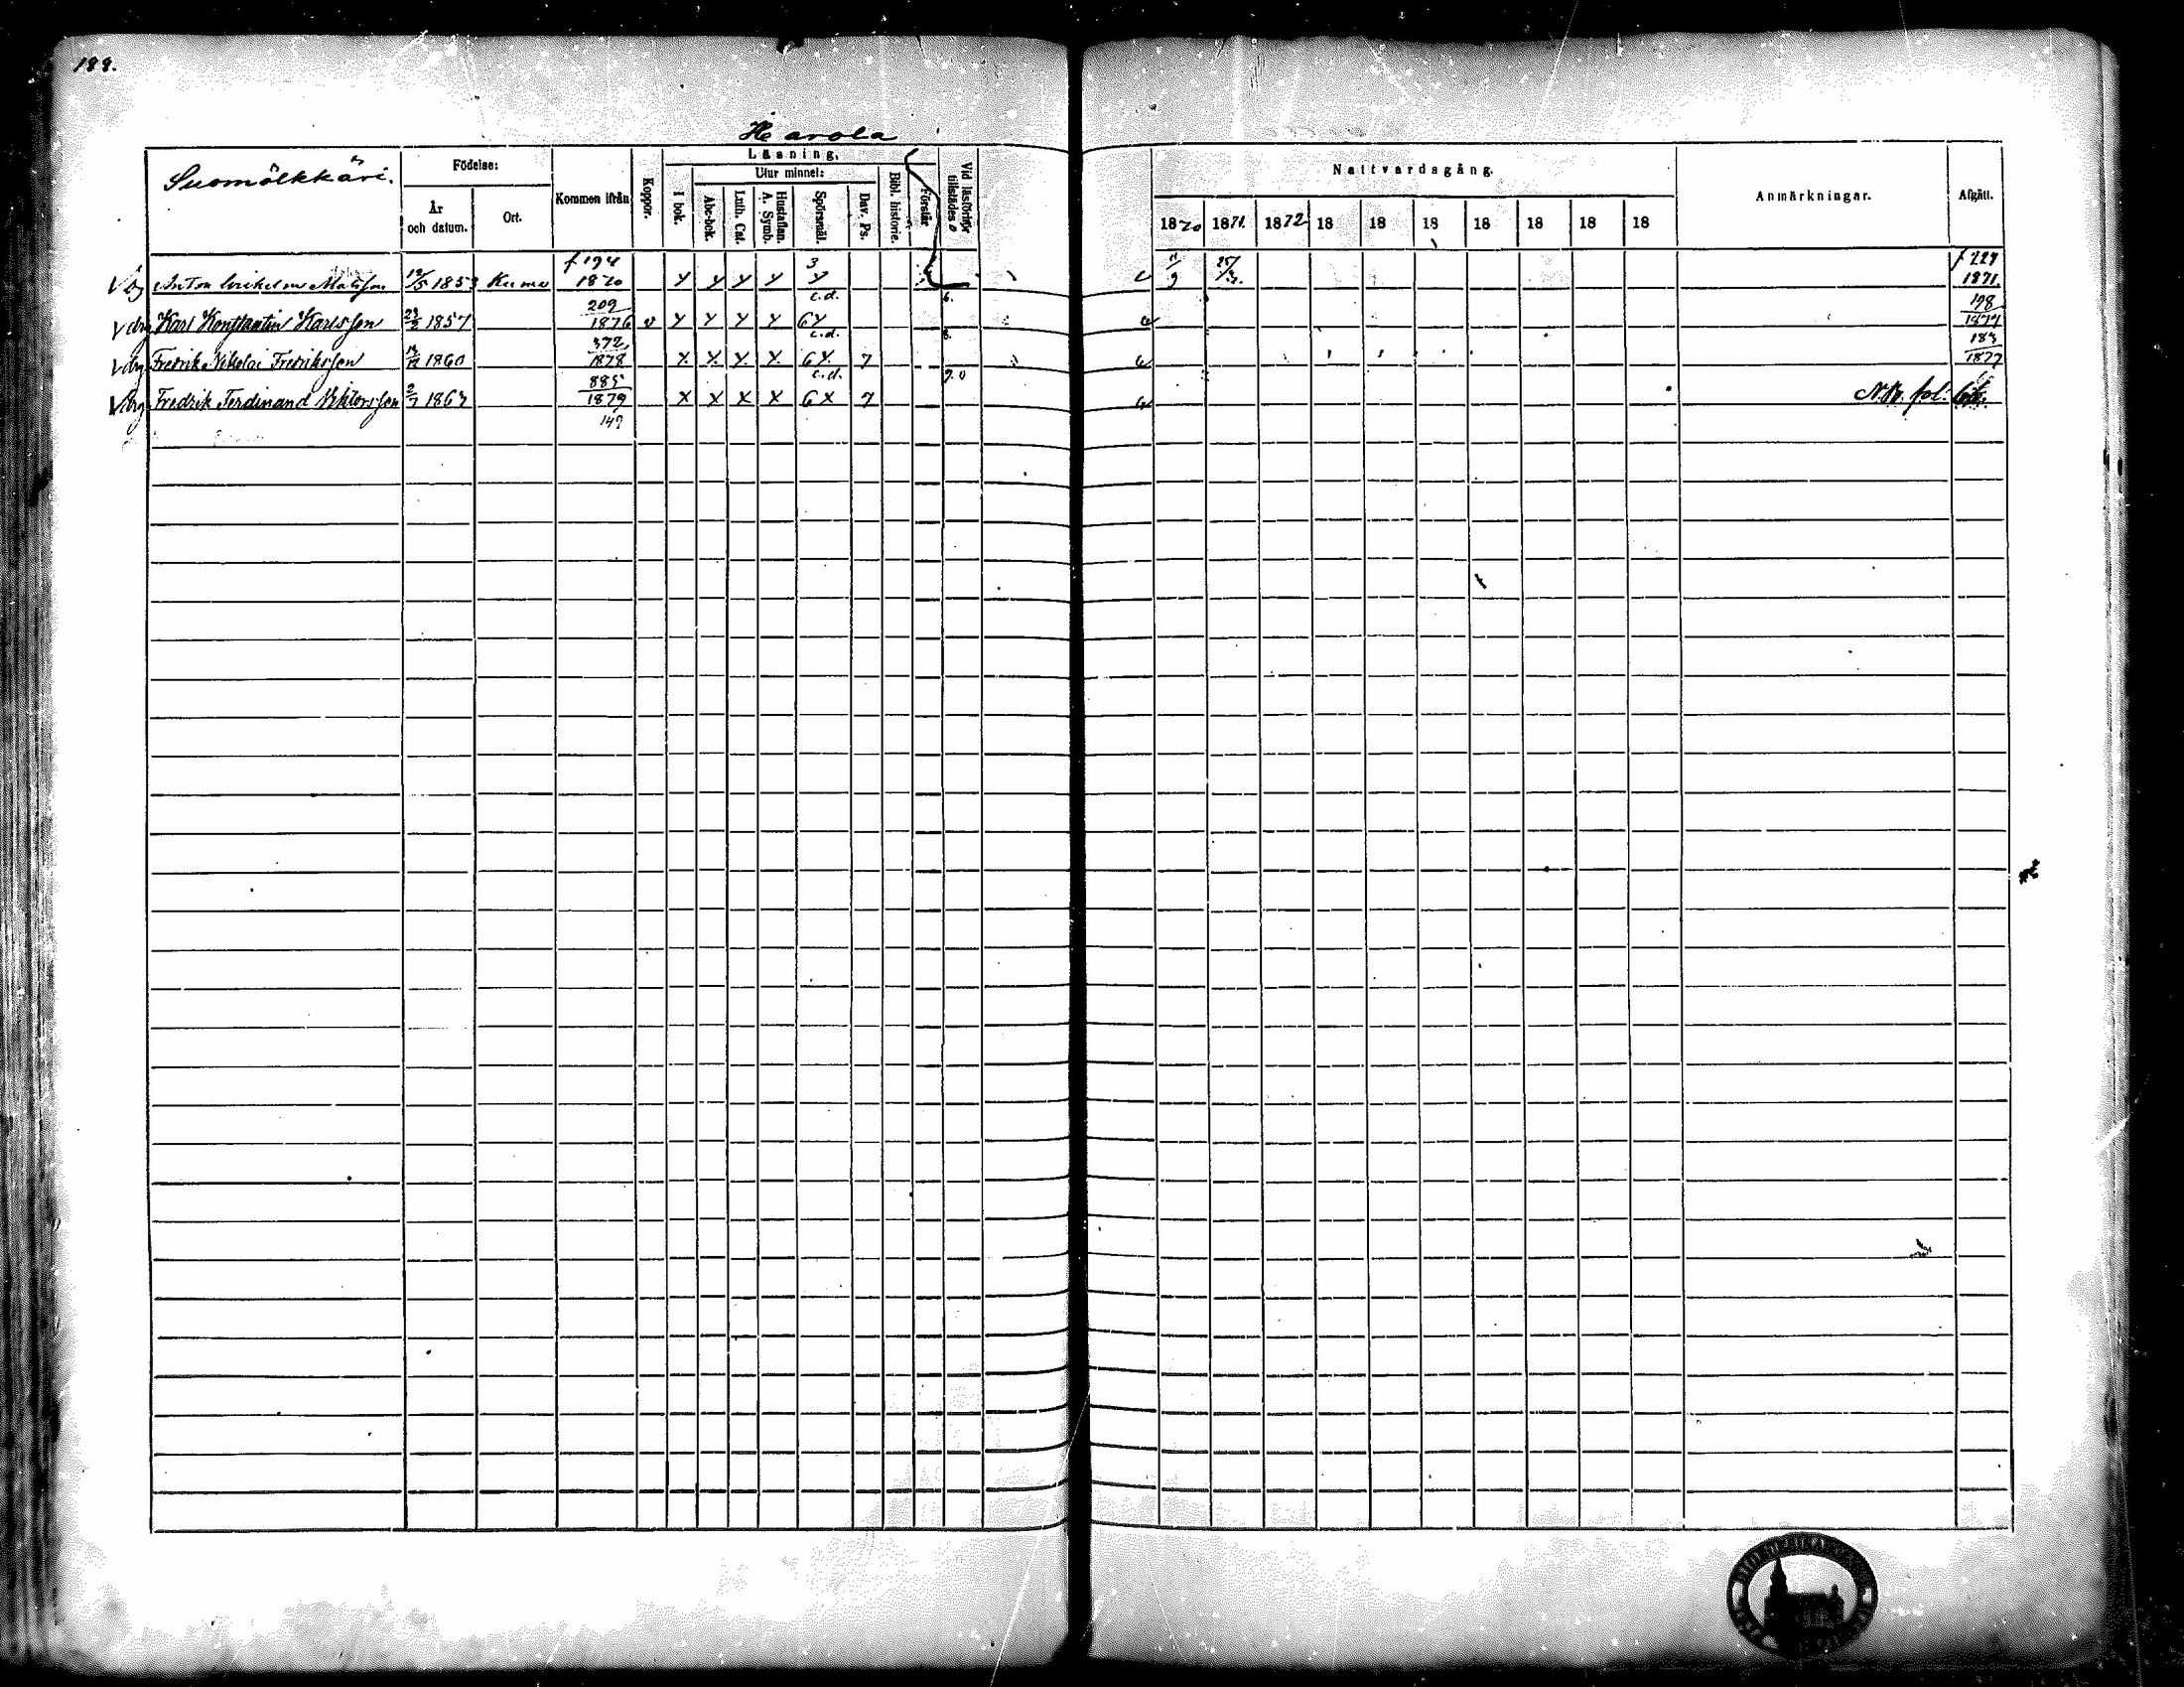 188.
Harola
Suomölkkäri.
Födelse:
År och datum.
Ort.
Kommen ifrån
Koppor.
Läsning.
I bok.
Utur minnet:
Abc-bok.
Luth. Cat.
Hustaflan. A. Symb.
Spörsmål.
Dav. Ps.
Bibl. historie.
Förstår
Vid läsförhör tillstädes
Nattvardsgång.
1870 1871. 1872 18 18 18 18 18 18 18
Anmärkningar.
Afgått.
f 194 3 f 227
Anton Matsson 1853 Kumo 1870 11/9 1871.
209 c.d. 6. 198
Karl Konstantin Karlsson 23/2 1857 1876 v 6 1877
372, c.d. 8. 183
Fredrik Nikolai Fredriksson 1860 1878 6 7 1877
885 c.d. 9.0
drg Fredrik Ferdinand Viktorsson 2/7 1863 1879 x x x x 6 x 7 fol:
149